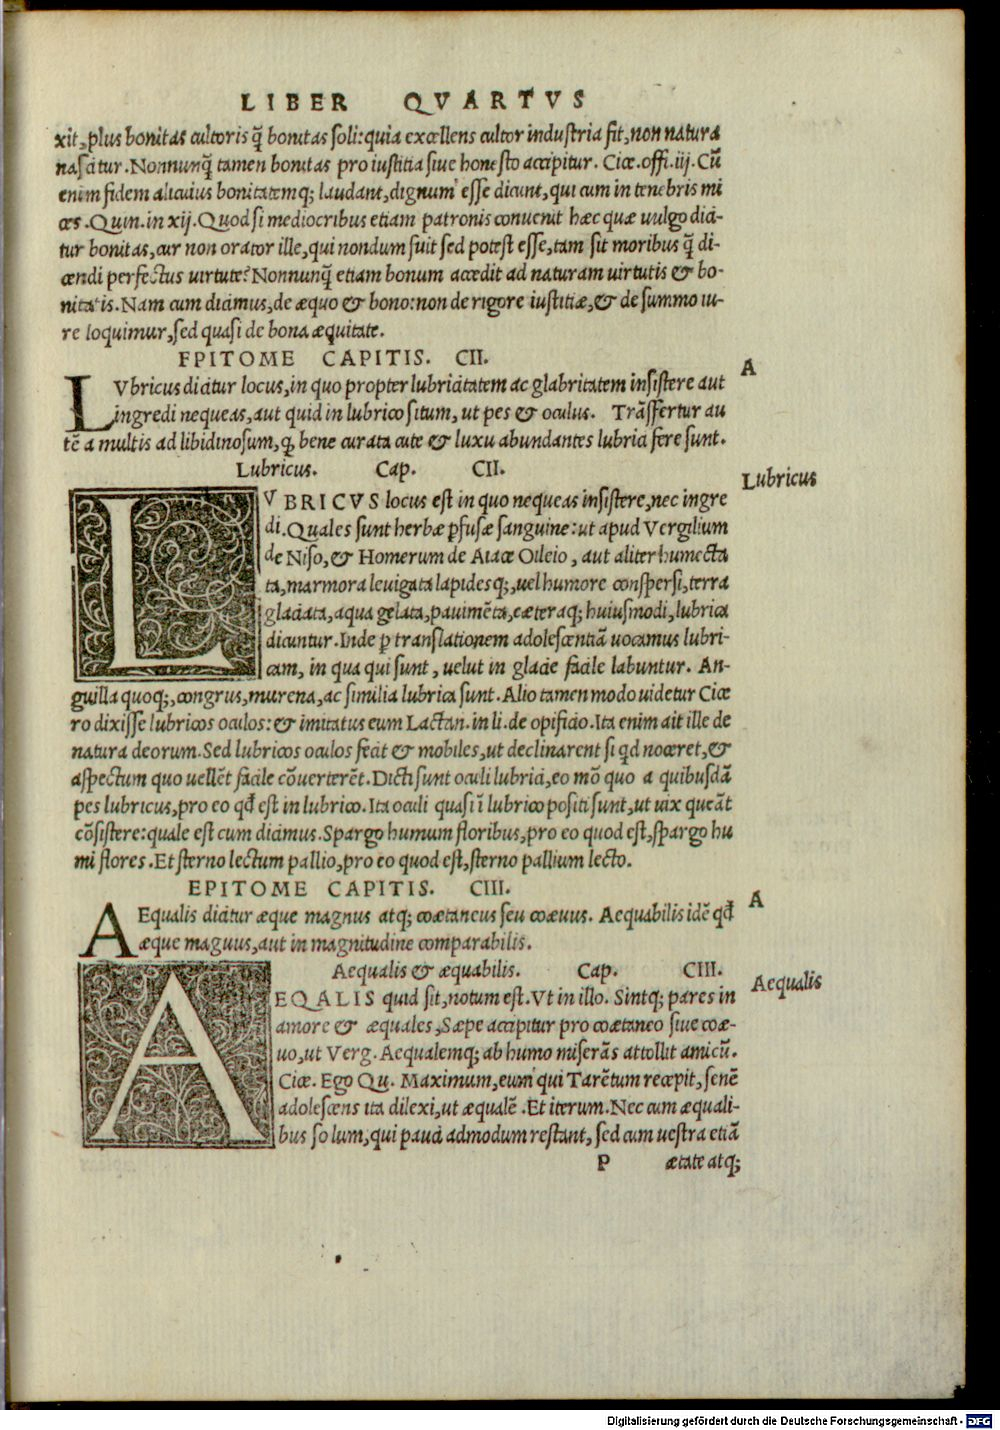 LIBER QVARTVS
xit, plus bonitas cultoris q̃ bonitas soli: quia excellens cultor industria fit, non natura
nascitur. Nonnunq̃ tamen bonitas pro iustitia siue honesto accipitur. Cice. offi. iij. Cũ
enim fidem alicuius bonitatemq; laudant, dignum esse dicunt, qui cum in tenebris mi
ces. Quin. in xij. Quod si mediocribus etiam patronis conuenit hæc quæ uulgo dici-
tur bonitas, cur non orator ille, qui nondum fuit sed potest esse, tam sit moribus q̃ di-
cendi perfectus uirtute? Nonnunq̃ etiam bonum accedit ad naturam uirtutis & bo-
nitatis. Nam cum dicimus, de æquo & bono: non de rigore iustitiæ, & de summo iu-
re loquimur, sed quasi de bona æquitate.
EPITOME CAPITIS. CII.
A
LVbricus dicitur locus, in quo propter lubricitatem ac glabritatem insistere aut
ingredi nequeas, aut quid in lubrico situm, ut pes & oculus. Trãsfertur au
tẽ a multis ad libidinosum, ꝙ bene curata cute & luxu abundantes lubrici fere sunt.
Lubricus. Cap. CII.
Lubricus
LVBRICVS locus est in quo nequeas insistere, nec ingre
di. Quales sunt herbæ ꝑfusæ sanguine: ut apud Vergilium
de Niso, & Homerum de Aiace Oileio, aut aliter humecta
ta, marmora leuigata lapidesq;, uel humore conspersi, terra
glaciata, aqua gelata, pauimẽta, cæteraq; huiusmodi, lubrica
dicuntur. Inde ꝑ translationem adolescentiã uocamus lubri-
cam, in qua qui sunt, uelut in glacie facile labuntur. An-
guilla quoq;, congrus, murena, ac similia lubrica sunt. Alio tamen modo uidetur Cice
ro dixisse lubricos oculos: & imitatus eum Lactan. in li. de opificio. Ita enim ait ille de
natura deorum. Sed lubricos oculos fecit & mobiles, ut declinarent si qd noceret, &
aspectum quo uellẽt facile cõuerterẽt. Dicti sunt oculi lubrici, eo mõ quo a quibusdã
pes lubricus, pro eo qđ est in lubrico. Ita oculi quasi ĩ lubrico positi sunt, ut uix queãt
cõsistere: quale est cum dicimus. Spargo humum floribus, pro eo quod est, spargo hu
mi flores. Et sterno lectum pallio, pro eo quod est, sterno pallium lecto.
EPITOME CAPITIS. CIII.
A
AEqualis dicitur æque magnus atq; coætaneus seu coæuus. Aequabilis idẽ qđ
æque maguus, aut in magnitudine comparabilis.
Aequalis & æquabilis. Cap. CIII.
Aequalis
AEQALIS quid sit, notum est. Vt in illo. Sintq; pares in
amore & æquales, Sæpe accipitur pro coætaneo siue coæ-
uo, ut Verg. Aequalemq; ab humo miserãs attollit amicũ.
Cice. Ego Qu. Maximum, eum qui Tarẽtum recepit, senẽ
adolescens ita dilexi, ut æqualẽ. Et iterum. Nec cum æquali-
bus solum, qui pauci admodum restant, sed cum uestra etiã
P ætate atq;
Digitalisierung gefördert durch die Deutsche Forschungsgemeinschaft - DFG